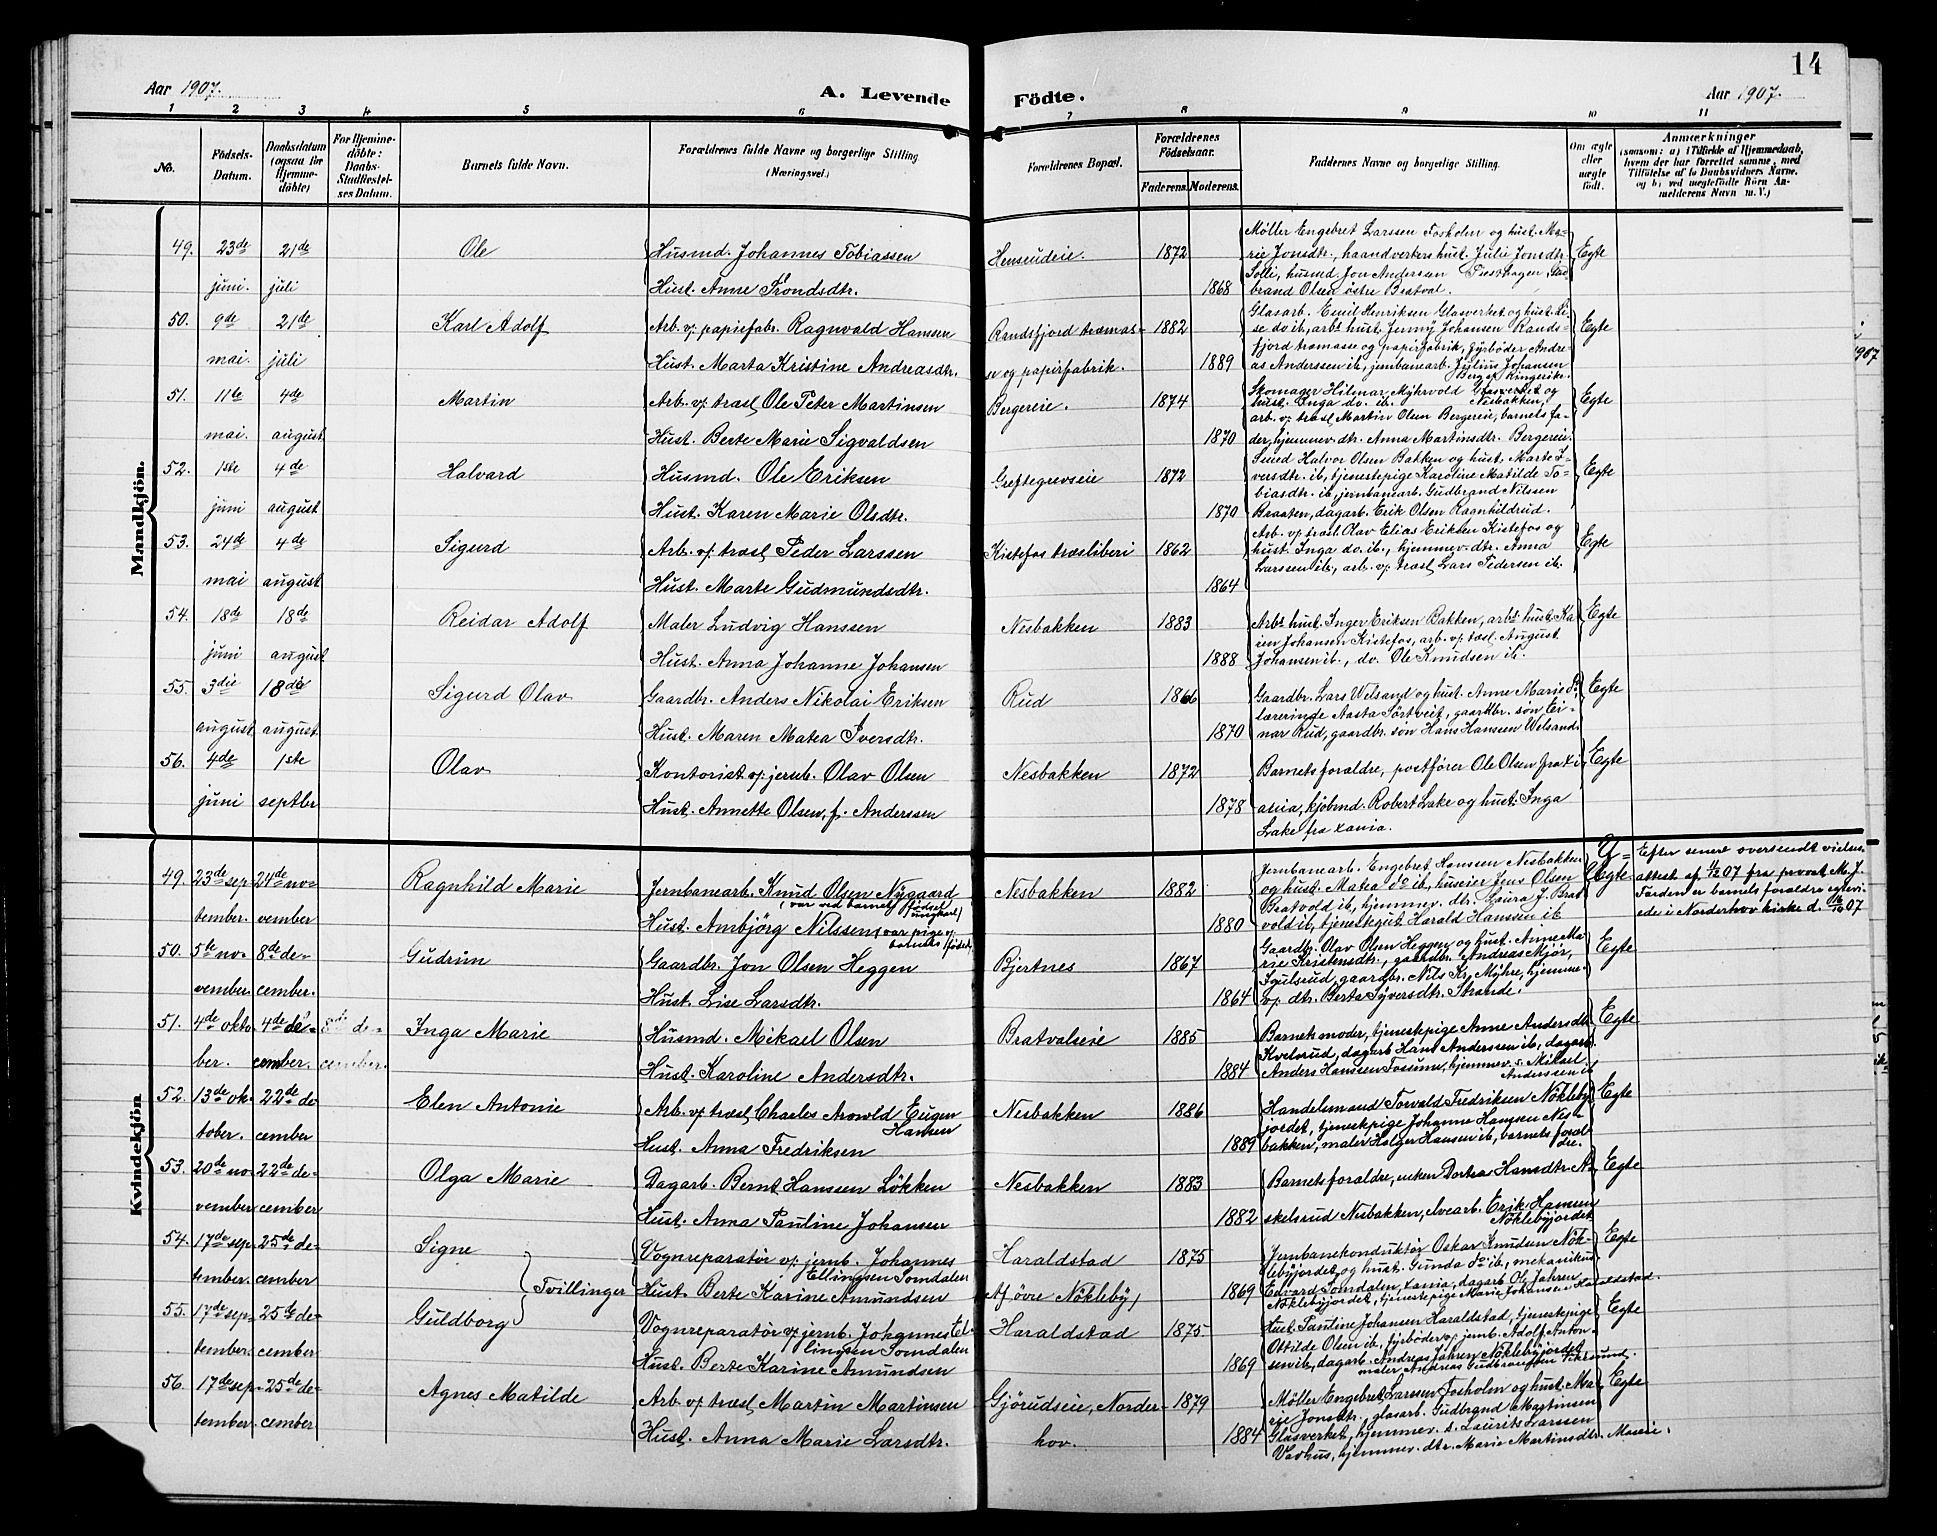 14
Aar 1907.
A. Levende Födte.
Aar 1907.
1 2 3 4 5 6 7 8 9 10 11
No.
Födsels-Datum.
Daabsdatum (ogsaa for Hjemme-döbte)
For Hjemme-döbte: Daabs-Stadfæstel-ses Datum.
Barnets fulde Navn.
Forældrenes fulde Navne og borgerlige Stilling. (Næringsvei.)
Forældrenes Bopæl.
Forældrenes Födselsaar.
Faderens. Moderens.
Faddernes Navne og borgerlige Stilling.
Om ægte eller uægte födt.
Anmærkninger
(saasom: a) i Tilfælde af Hjemmedaab, hvem der har forrettet samme, med Tilföielse af to Daabsvidners Navne, og b) ved uægtefödte Börn An-melderens Navn m. V.)
Mandkjön.
49. 23de juni. 21de juli Ole
Husmd. Johannes Tobiassen
Hust. Anne Trondsdtr.
Henseudeie. 1872 1868
Møller Engebret Larssen Fosholm og hust. Ma-
rie Jonsdtr., haandverkers hust. Julie Jonsdtr.
Solli, husmd. Jon Andersen
brand Olsen østre Bratval.
Egte
50. 9de mai. 21de juli Karl Adolf
Arb. v. papirfabr. Ragnvald Hansen
Hust. Marta Kristine Andreasdtr.
Randsfjord træmas-
se og papirfabrik. 1882 1889
Glasarb. Emil Henriksen Glasverket og hust. Li-
se do ib., arbs hust. Jenny Johansen Rands-
fjord træmasse og papirfabrik, fyrbøder Andre-
as Anderssen ib., jernbanearb. Julius Johansen
Berg af Ringerike.
Egte
51. 11te mai. 4de august Martin
Arb. v. træsl. Ole Peter Martinsen
Hust. Berte Marie Sigvaldsen
Bergereie. 1874 1870
Skomager Hilmar Myhrvold Glasverket og
hust. Inga do. ib. Nesbakken,
arb. v. træsl. Martin Olsen Bergereie, barnets fa-
der, hjemmev. dtr. Anna Martinsdtr. Bergereie.
Egte
52. 1ste juni 4de august Halvard
Husmd. Ole Eriksen
Hust. Karen Marie Olsdtr.
Greftegrevseie 1872 1870
Smed Halvor Olsen Bakken og hust. Marte I-
versdtr. ib., tjenestepige Karoline Matilde To-
biasdtr. ib., jernbanearb. Gudbrand Nilssen
Braaten, dagarb. Erik Olsen Ragnhildrud.
Egte
53. 24de mai 4de august Sigurd
Arb. v. træsl. Peder Larssen
Hust. Marte Gudmundsdtr.
Kistefos træsliberi 1862 1864
Arb. v. træsl. Olav Elias Eriksen Kistefos og
hust. Inga do. ib., hjemmev. dtr. Anna
Larssen ib., arb. v. træsl. Lars Pedersen ib.
Egte
54. 18de juni 18de august Reidar Adolf
Maler Ludvig Hanssen
Hust. Anna Johanne Johansen
Nesbakken 1883 1888
Arbs hust. Inger Eriksen Bakken, arbs hust. Ka-
ren Johansen Kistefos, arb. v. træsl. August
Johansen ib., do. Ole Knudsen ib.
Egte
55. 3die august 18de august. Sigurd Olav
Gaardbr. Anders Nikolai Eriksen
Hust. Maren Matea Iversdtr.
Rud 1866 1870
Gaardbr. Lars Welsand og hust. Anne Marie do.
lærerinde Aasta Sørtveit, gaardbr. søn Ei-
nar Rud, gaardbr. søn Hans Hansen Welsand.
Egte
56. 4de juni 1ste septbr Olav
Kontorist v. jernb. Olav Olsen
Hust. Annette Olsen, f. Anderssen
Nesbakken 1872 1878
Barnets forældre, postfører Ole Olsen fra Xi-
ania, kjøbmd. Robert Lake og hust. Inga
Lake fra Xania.
Egte
Kvindekjön
49. 23de september. 24de november Ragnhild Marie
Jernbanearb. Knud Olsen Nygaard
(var ved barnets fødsel ungkarl)
Hust. Ambjörg Nilssen (var pige v. barnets fødsel)
Nesbakken 1882 1880
Jernbanearb. Engebret Hanssen Nesbakken
og hust. Matea do ib., huseier Jens Olsen
Bratvold ib., hjemmev. dtr. Laura J. Brat-
vold ib., tjenestegut Harald Hanssen ib
U-Egte
Efter senere oversendt vielses-
attest af 1/12 07 fra provst M. J.
Færden er barnets forældre egtevi-
ede i Norderhov kirke d. 07
50. 5te november. 8de december. Gudrun
Gaardbr. Jon Olsen Heggen
Hust. Lise Larsdtr.
Bjertnes 1867 1864
Gaardbr. Olav Olsen Heggen og hust. Anne Ma-
rie Kristensdtr., gaardbr. Andreas Mjör,
Igulsrud, gaardbr. Nils Kr. Myhre, hjemme-
v. dtr. Berta Syversdtr. Strande.
Egte
51. 4de oktober. 4de december. 8de december. Inga Marie
Husmd. Mikael Olsen
Hust. Karoline Andersdtr.
Bratvalseie 1885 1884
Barnets moder, tjenestepige Anne Andersdtr.
Kvelsrud, dagarb. Hans Anderssen ib., dagarb.
Anders Hanssen Fossum, hjemmev. s. Mikael
Anderssen ib
Egte
52. 13de oktober. 22de december Elen Antonie
Arb. v. træsl. Charles Arnold Eugen
Hansen
Hust. Anna Fredriksen
Nesbakken 1886 1889
Handelsmand Torvald Fredriksen Nökleby-
jordet, tjenestepige Johanne Hansen Nes-
bakken, maler Holger Hansen ib., barnets foræl-
dre.
Egte
53. 20de november 22de december Olga Marie
Dagarb. Bernt Hanssen Lökken
Hust. Anna Pauline Johansen
Nesbakken 1883 1882
Barnets forældre, enken Dortea Hansdtr. A-
skelsrud Nesbakken, elvearb. Erik Hansen
Nöklebyjordet
Egte
54. 17de september. 25de december Signe
Tvillinger
Vognreparatör v. jernb. Johannes
Ellingsen Somdalen
Hust. Berte Karine Amundsen
Haraldstad
Af øvre Nökleby) 1875 1869
Jernbanekonduktör Oskar Knudsen Nök-
lebyjordet og hust. Gunda do ib., mekanikus
Edvard Somdalen, Xania, dagarb. Ole Jahren
Nöklebyjordet, tjenestepige Marie Johansen Haraldstad.
Egte
55. 17de september. 25de december Guldborg
Vognreparatör v. jernb. Johannes El-
lingsen Somdalen
Hust. Berte Karine Amundsen
Haraldstad 1875 1869
Hust. Pauline Johansen Haraldstad, tjenestepige
Ottilde Olsen ib., fyrbøder v. jernb. Adolf Anton-
sen ib., dagarb. Andreas Jahren Nöklebyjordet
maler Andreas Gudbrandsen Viksund.
Egte
56. 17de september. 25de december Agnes Matilde
Arb. v. træsl. Martin Martinsen
Hust. Anna Marie Larsdtr.
Gjörudseie, Norder-
hov. 1879 1884
Møller Engebret Larssen Fosholm og hust. Ma-
rie Jonsdtr., glasarb. Gudbrand Martinsen
Glasverket, hjemmev. s. Laurits Larssen
Vadhus, hjemmev. dtr. Marie Martinsdtr. Moseie.
Egte